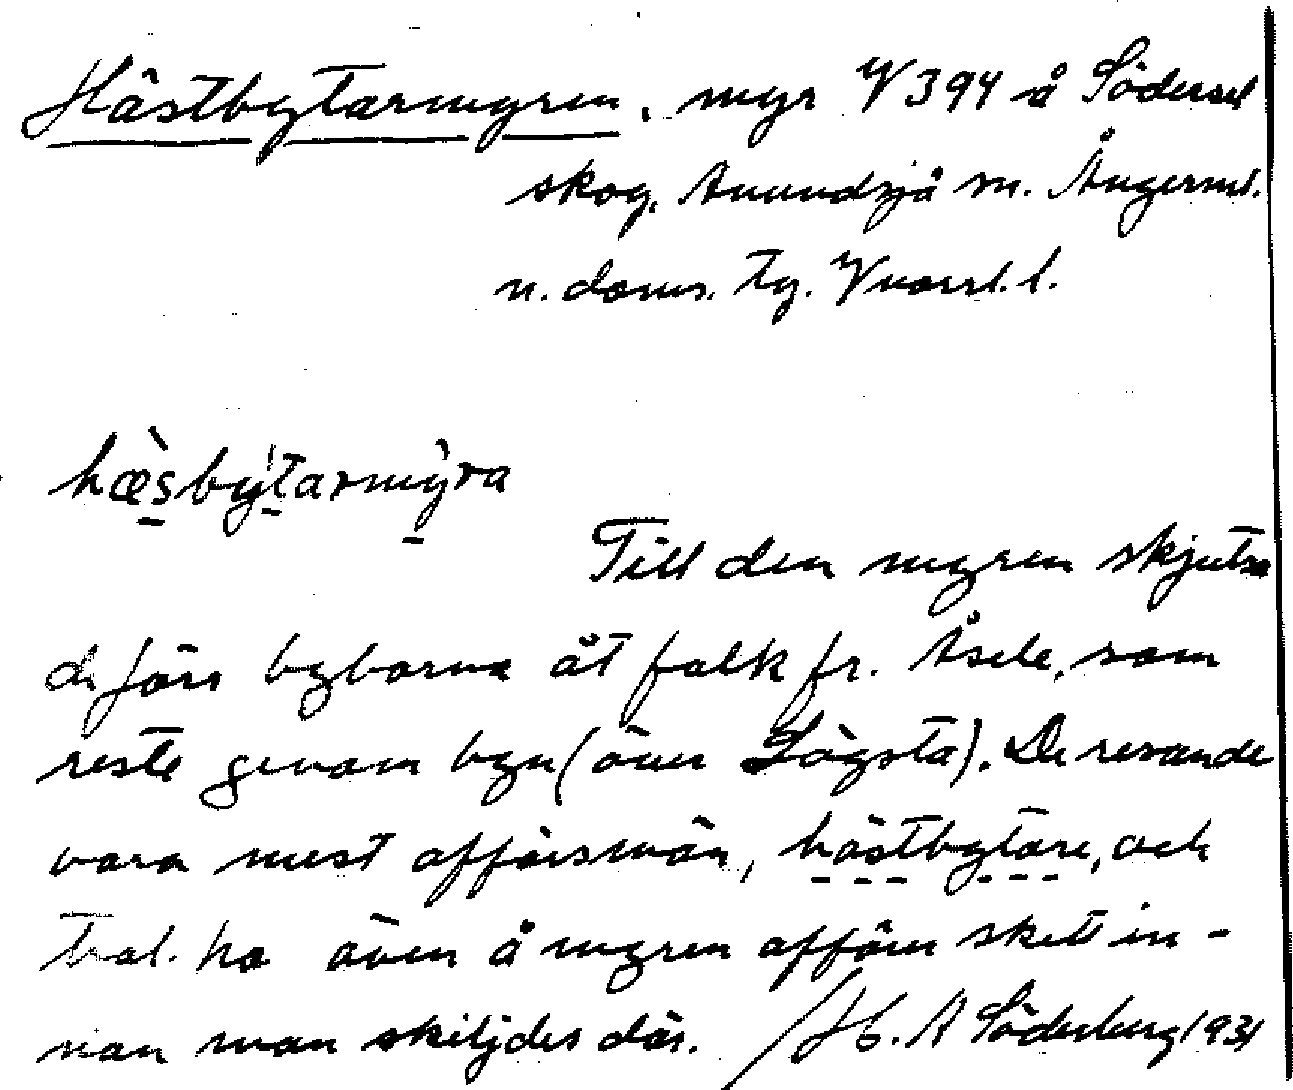 Hästbytarmyren, myr V 394 å Södersel
skog, Anundsjö sn. Ångerml.
n. doms. tg. Vnorrl. l.
hæ̀sby'tarmỳra
Till den myren skjutsa
de förr byborna åt folk fr. Åsele, som
reste genom byn (över Lögsta). De resande
voro mest affärsmän, hästbytare, och
trol. ha även å myren affärer skett in-
nan man skiljdes där. / H. A Söderberg 1931